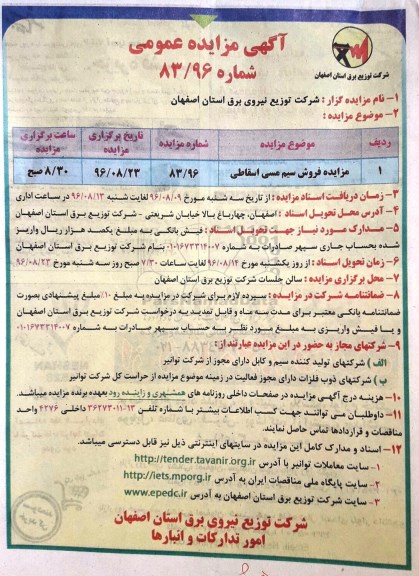 آگهی مزایده عمومی
شماره ۸۳/۹۶
شرکت توزیع برق استان اصفهان
۱- نام مزایده گزار : شرکت توزیع نیروی برق استان اصفهان
۲- موضوع مزایده :
ردیف موضوع مزایده شماره مزایده تاریخ برگزاری مزایده ساعت برگزاری مزایده
۱ مزایده فروش سیم مسی اسقاطی ۸۳/۹۶ ۹۶/۰۸/۲۳ ۸/۳۰ صبح
۳- زمان دریافت اسناد مزایده : از تاریخ سه شنبه مورخ ۹۶/۰۸/۰۹ لغایت شنبه ۹۶/۰۸/۱۳ در ساعت اداری
۴- آدرس محل تحویل اسناد : اصفهان، چهارباغ بالا خیابان شریعتی - شرکت توزیع برق استان اصفهان
۵- مدارک مورد نیاز جهت تحویل اسناد : فیش بانکی به مبلغ یکصد هزار ریال واریز
شده بحساب جاری سپهر صادرات به شماره ۰۱۰۱۶۷۳۳۱۴۰۰۷ بنام شرکت توزیع برق استان اصفهان
۶- زمان تحویل اسناد : از روز یکشنبه مورخ ۹۶/۰۸/۱۴ لغایت ساعات ۷/۳۰ صبح روز سه شنبه مورخ ۹۶/۰۸/۲۳
۷- محل برگزاری مزایده : سالن جلسات شرکت توزیع برق استان اصفهان
۸- ضمانتنامه شرکت در مزایده : سپرده لازم برای شرکت در مزایده به مبلغ ۱۰٪ مبلغ پیشنهادی بصورت
ضمانتنامه بانکی معتبر برای مدت سه ماه و قابل تمدید به درخواست شرکت توزیع برق استان اصفهان
و یا فیش واریزی به مبلغ مورد نظر به حساب سپهر صادرات به شماره ۰۱۰۱۶۷۳۳۱۴۰۰۷
۹- شرکتهای مجاز به حضور در این مزایده عبارتند از :
الف ) شرکتهای تولید کننده سیم و کابل دارای مجوز از شرکت توانیر
ب ) شرکتهای ذوب فلزات دارای مجوز فعالیت در زمینه موضوع مزایده از حراست کل شرکت توانیر
۱۰- هزینه درج آگهی مزایده در صفحات داخلی روزنامه های همشهری و زاینده رود بعهده برنده مزایده میباشد.
۱۱- داوطلبان می توانند جهت کسب اطلاعات بیشتر با شماره تلفن ۱۳-۳۶۲۷۳۰۱۱ داخلی ۴۲۷۶ واحد
مناقصات و قراردادها تماس حاصل نمایند.
۱۲- اسناد و مدارک کامل این مزایده در سایتهای اینترنتی ذیل نیز قابل دسترسی میباشد.
۱- سایت معاملات توانیر با آدرس http://tender.tavanir.org.ir
۲- سایت پایگاه ملی مناقصات ایران به آدرس http://iets.mporg.ir
۳- سایت شرکت توزیع برق استان اصفهان به آدرس www.epedc.ir
شرکت توزیع نیروی برق استان اصفهان
امور تدارکات و انبارها